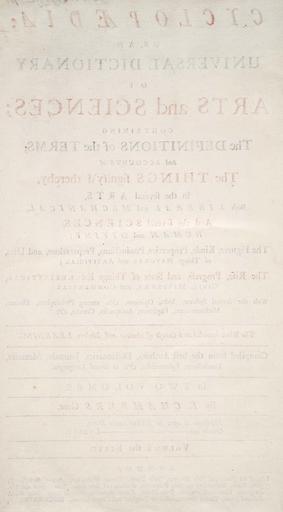 CYCLOPÆDIA:
OR, AN
UNIVERSAL DICTIONARY
OF
ARTS and SCIENCES;
CONTAINING
The DEFINITIONS of the TERMS,
And ACCOUNTS of
The THINGS signify'd thereby,
In the several ARTS,
Both LIBERAL and MECHANICAL,
And the several SCIENCES,
HUMAN and DIVINE:
The Figures, Kinds, Properties, Productions, Preparations, and Uses,
of Things NATURAL and ARTIFICIAL;
The Rise, Progress, and State of Things ECCLESIASTICAL,
CIVIL, MILITARY, and COMMERCIAL:
With the several Systems, Sects, Opinions, &c. among Philosophers, Divines,
Mathematicians, Physicians, Antiquaries, Criticks, &c.
The Whole intended as a Course of Antient and Modern LEARNING.
Compiled from the best Authors, Dictionaries, Journals, Memoirs,
Transactions, Ephemerides, &c. in several Languages.
In TWO VOLUMES.
By E. CHAMBERS Gent.
VOLUME the FIRST.
LONDON